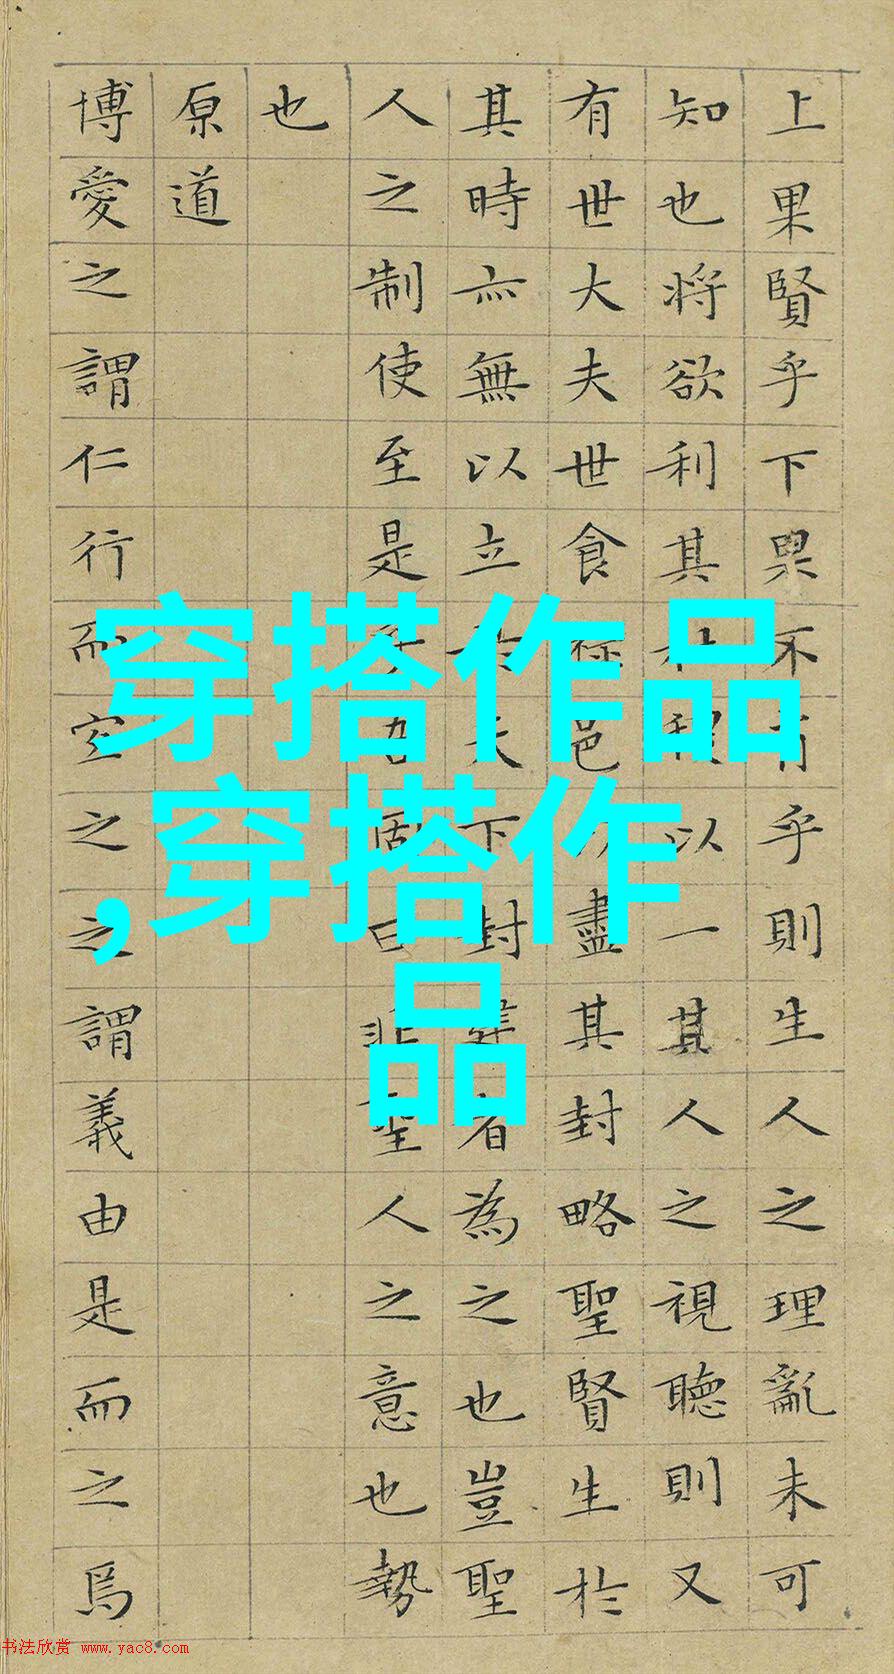 上果賢乎下果不肖乎則生人之理亂未可
知也將欲利其社稷以一其人之視聽則又
有世大夫世食祿邑以盡其封略聖賢生於
其時亦無以立於天下封建者為之也豈聖
人之制使至是乎吾固曰非聖人之意也勢
也
原道
博愛之謂仁行而宜之之謂義由是而之焉
穿搭作品
,穿搭作
品
书法欣赏 www.yac8.com